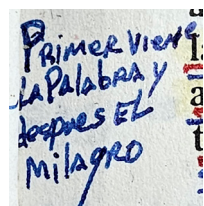 Primer Viene
la Palabra y
despues EL
Milagro